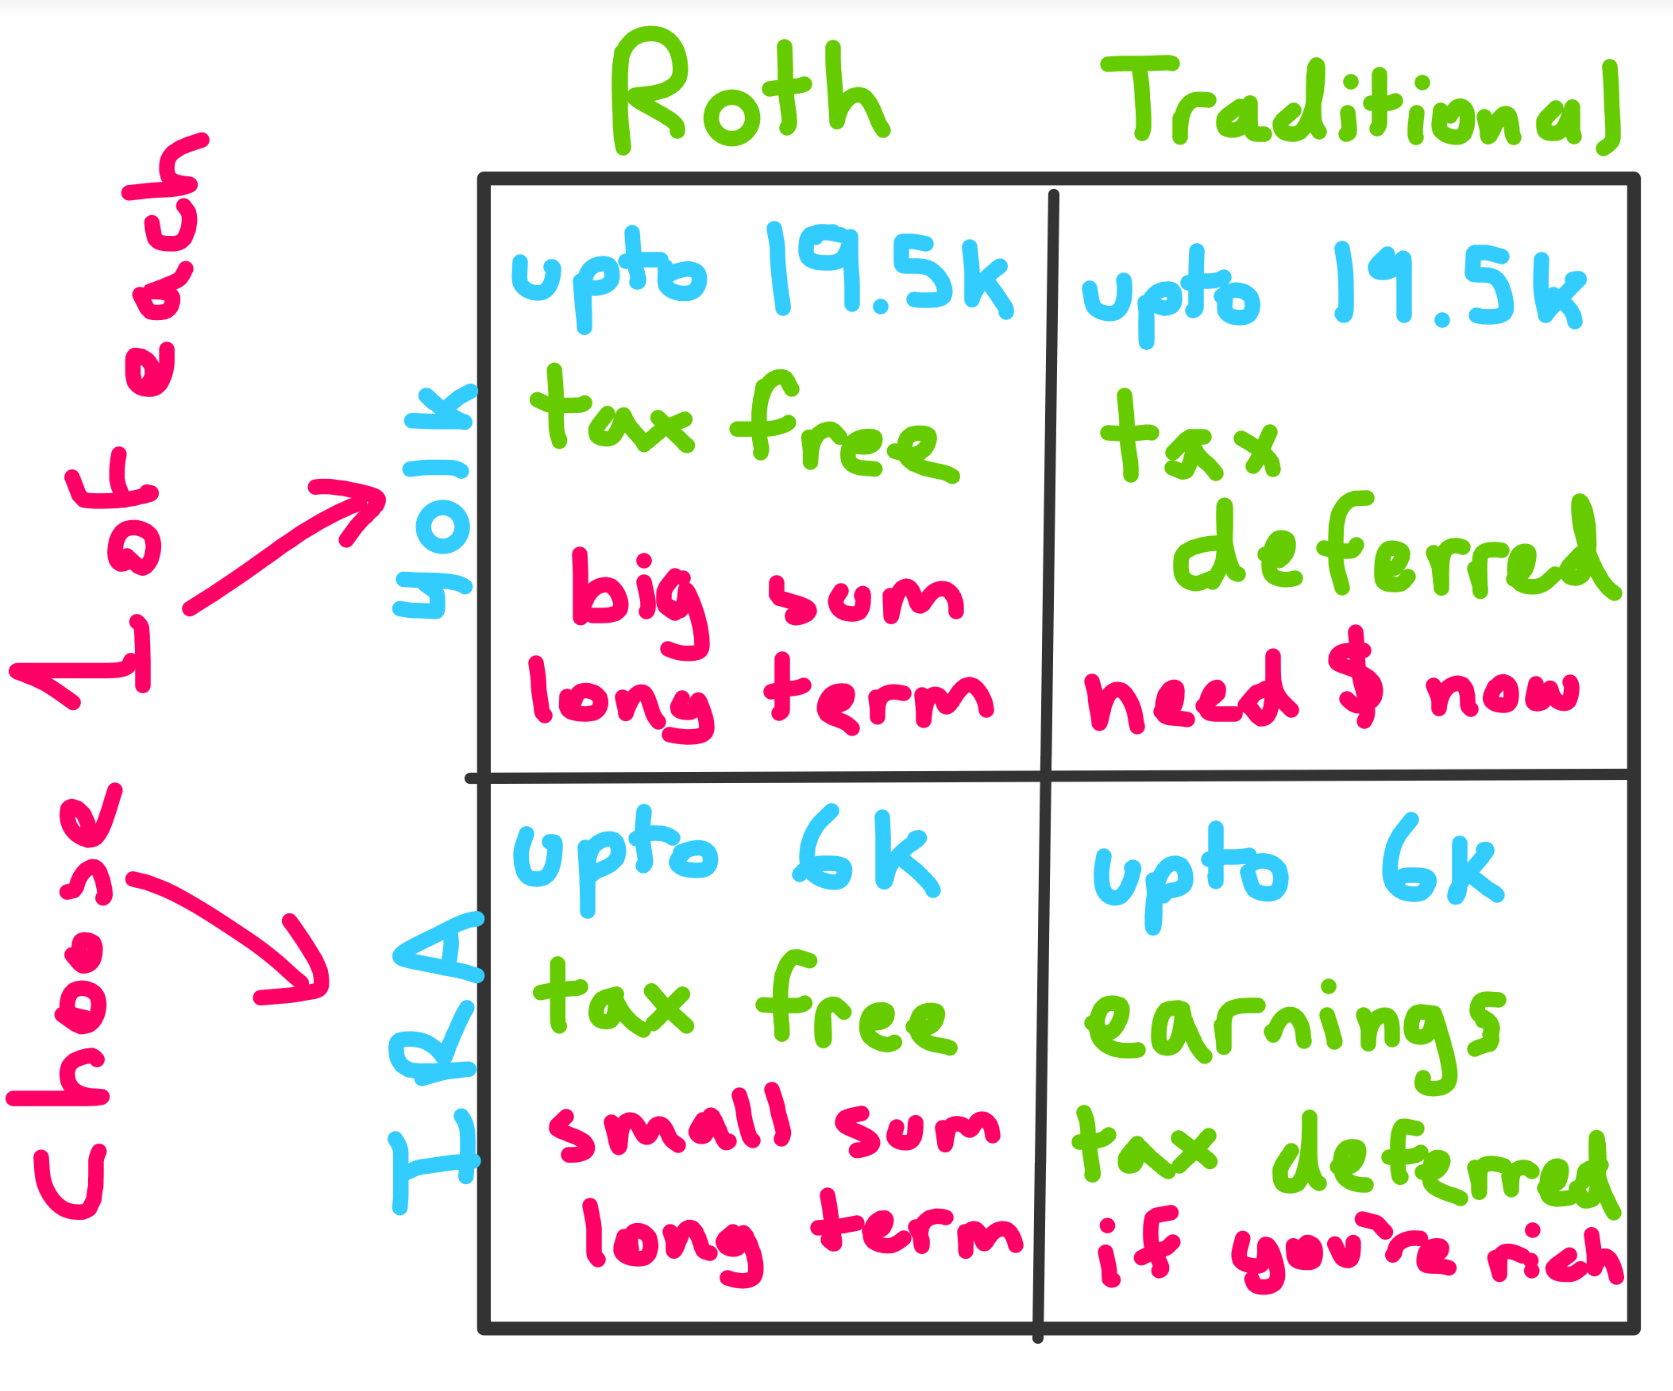 Roth Traditional
Choose 1 of each
401k
upto 19.5k
tax free
big sum
long term
upto 19.5k
tax
deferred
need $ now
IRA
upto 6k
tax free
small sum
long term
upto 6k
earnings
tax deferred
if you're rich